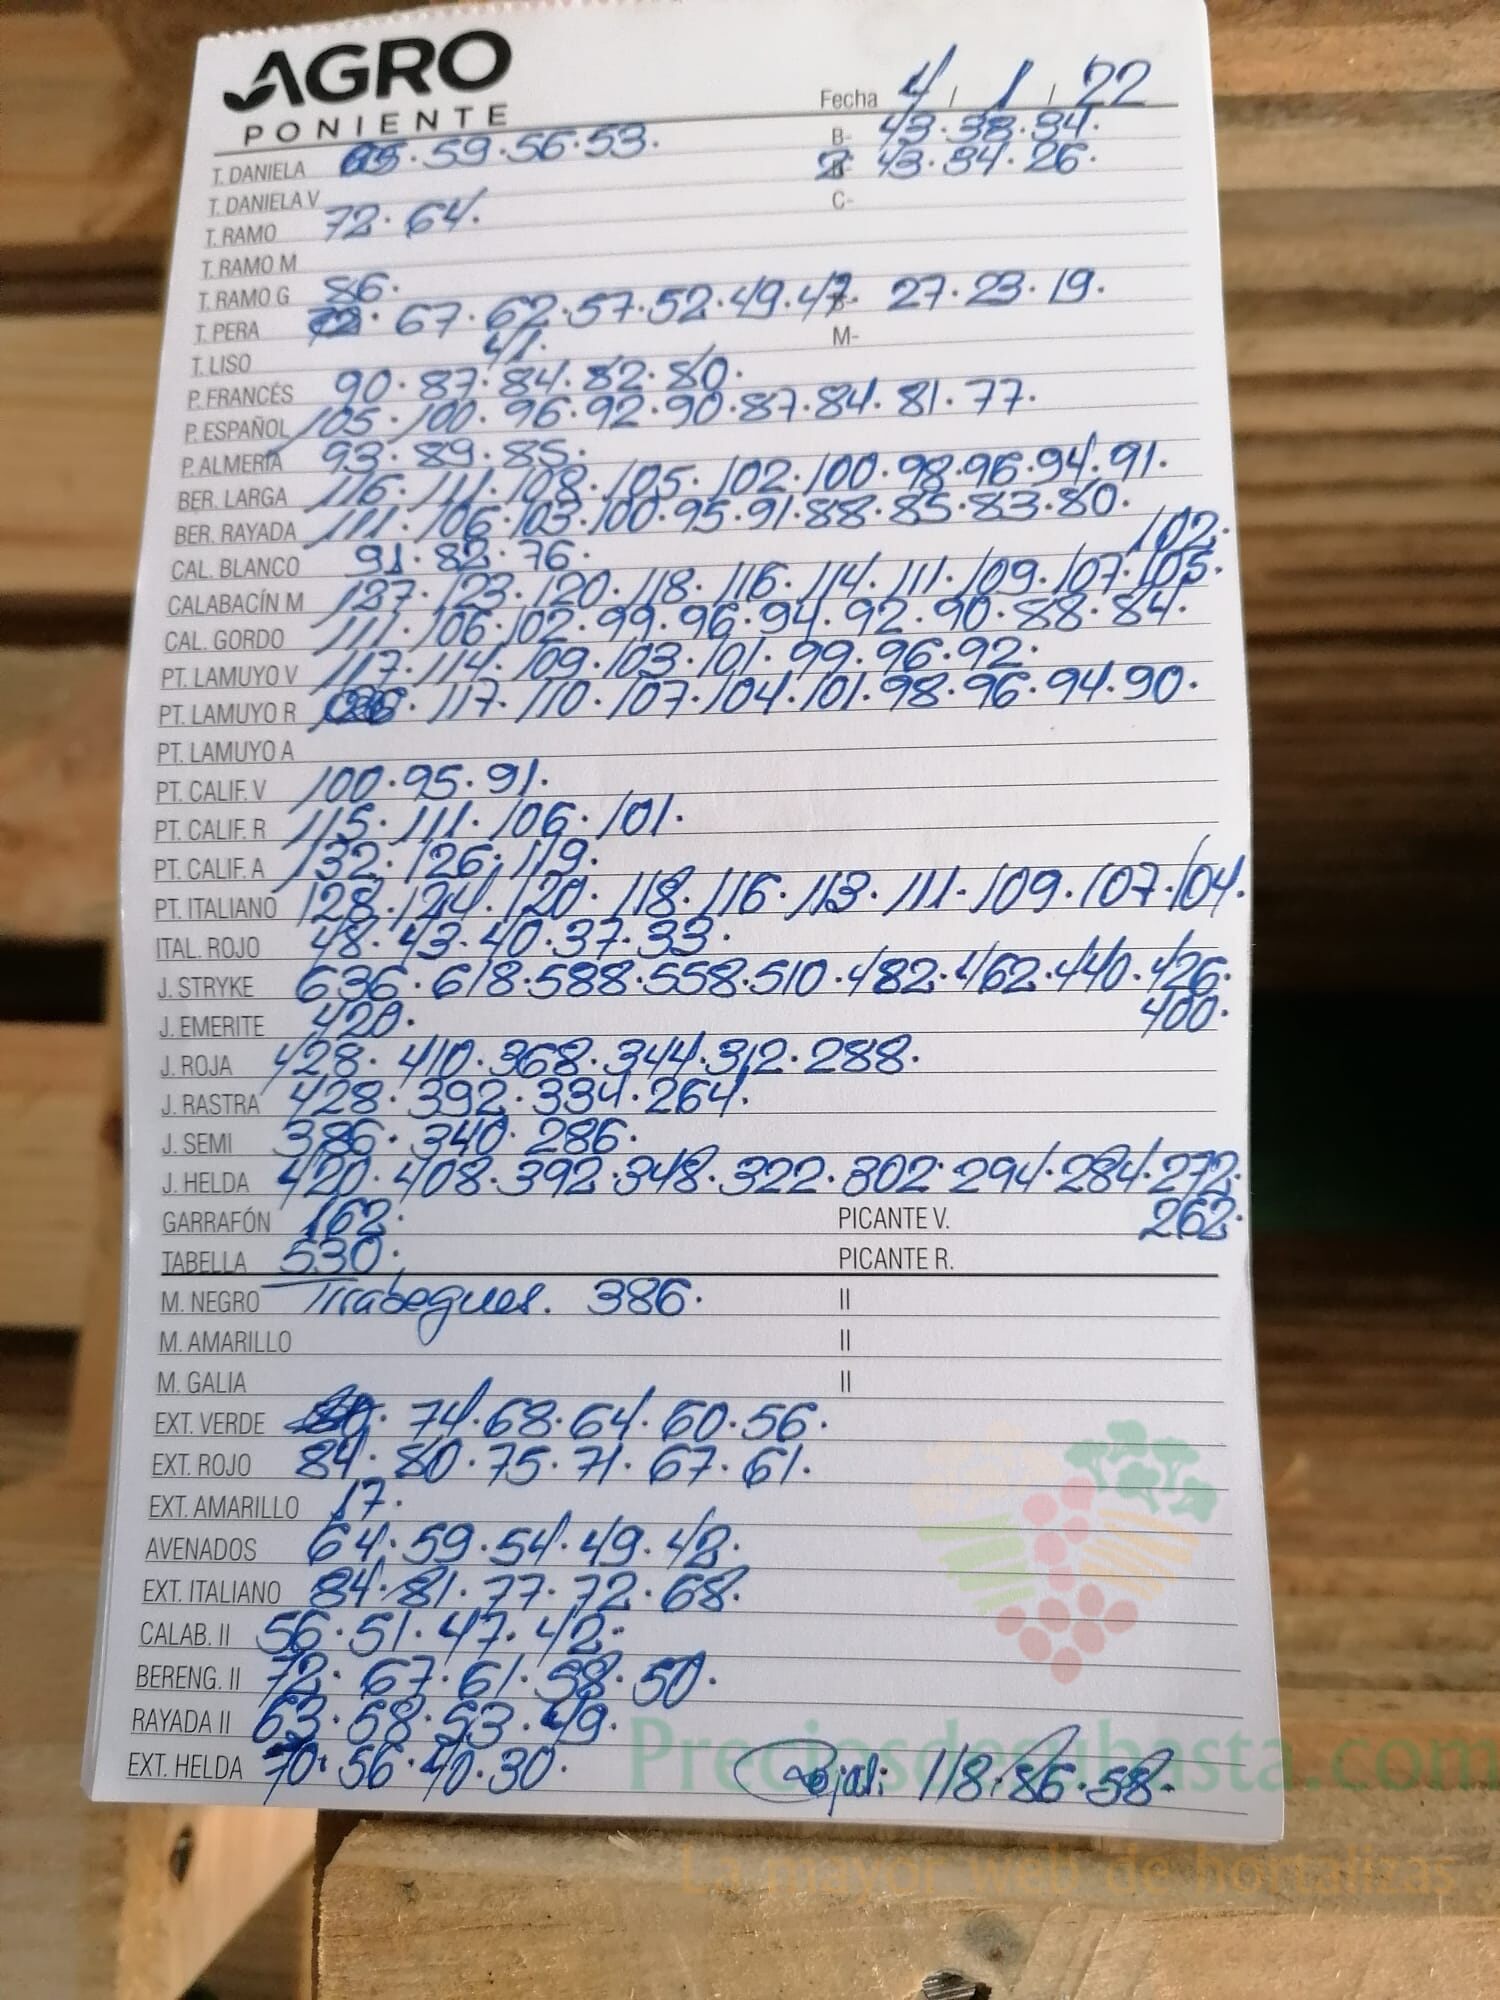 AGRO
PONIENTE
Fecha 4 / 1 / 22
B- 43·38·34·
T. DANIELA 65·59·56·53· 2 43·34·26·
T. DANIELA V C-
T. RAMO 72·64·
T. RAMO M
T. RAMO G 86·
T. PERA 72·67·62·57·52·49·47· 27·23·19·
41· M-
T. LISO
P. FRANCÉS 90·87·84·82·80·
P. ESPAÑOL 105·100·96·92·90·87·84·81·77·
P. ALMERÍA 93·89·85·
BER. LARGA 116·111·108·105·102·100·98·96·94·91·
BER. RAYADA 111·106·103·100·95·91·88·85·83·80·
CAL. BLANCO 91·82·76· 102·
CALABACÍN M 127·123·120·118·116·114·111·109·107·105·
CAL. GORDO 111·106·102·99·96·94·92·90·88·84·
PT. LAMUYO V 117·114·109·103·101·99·96·92·
PT. LAMUYO R ·117·110·107·104·101·98·96·94·90·
PT. LAMUYO A
PT. CALIF. V 100·95·91·
PT. CALIF. R 115·111·106·101·
PT. CALIF. A 132·126·119·
PT. ITALIANO 128·124·120·118·116·113·111·109·107·104·
ITAL. ROJO 48·43·40·37·33·
J. STRYKE 636·618·588·558·510·482·462·440·426·
J. EMERITE 420· 400·
J. ROJA 428·410·368·344·312·288·
J. RASTRA 428·392·334·264·
J. SEMI 386·340·286·
J. HELDA 420·408·392·348·322·302·294·284·272·
GARRAFÓN 162· PICANTE V. 262·
TABELLA 530· PICANTE R.
M. NEGRO Tirabeques. 386· II
M. AMARILLO II
M. GALIA II
EXT. VERDE 80·74·68·64·60·56·
EXT. ROJO 84·80·75·71·67·61·
EXT. AMARILLO 17·
AVENADOS 64·59·54·49·42·
EXT. ITALIANO 84·81·77·72·68·
CALAB. II 56·51·47·42·
BERENG. II 72·67·61·58·50·
RAYADA II 63·58·53·49·
Preciosdesubasta.com
EXT. HELDA 70·56·40·30· 118·86·58·
La mayor web de hortalizas